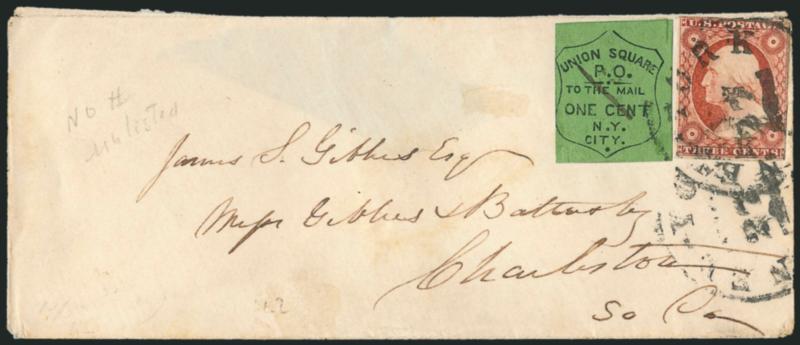 UNION SQUARE
P.O.
TO THE MAIL
ONE CENT
N.Y.
CITY.
U.S. POSTAGE
THREE CENTS
YORK
NO #
unlisted
James S. Gibbes Esq
Messr Gibbes & Battersby
Charleston
So Ca